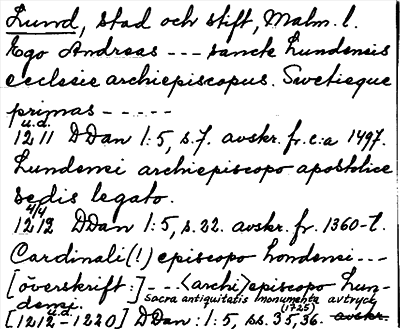 Lund, stad och stift, Malm. l.
Ego Andreas --- sancte Lundensis
ecclesie archiepiscopus. Swetieque
primas -----
u.d.
1211 DDan 1:5, s.7. avskr. fr. c:a 1497.
Lundensi archiepiscopo apostolice
sedis legato.
4/4
1212 DDan 1:5, s.22. avskr. fr. 1360-t.
Cardinali (!) episcopo londensi ---
[överskrift:] --- <archi>episcopo Lun-
densi. Sacra antiquitatis monumenta avtryck
u.d. (1725)
[1212-1220] DDan 1:5, ss. 35, 36. avskr.